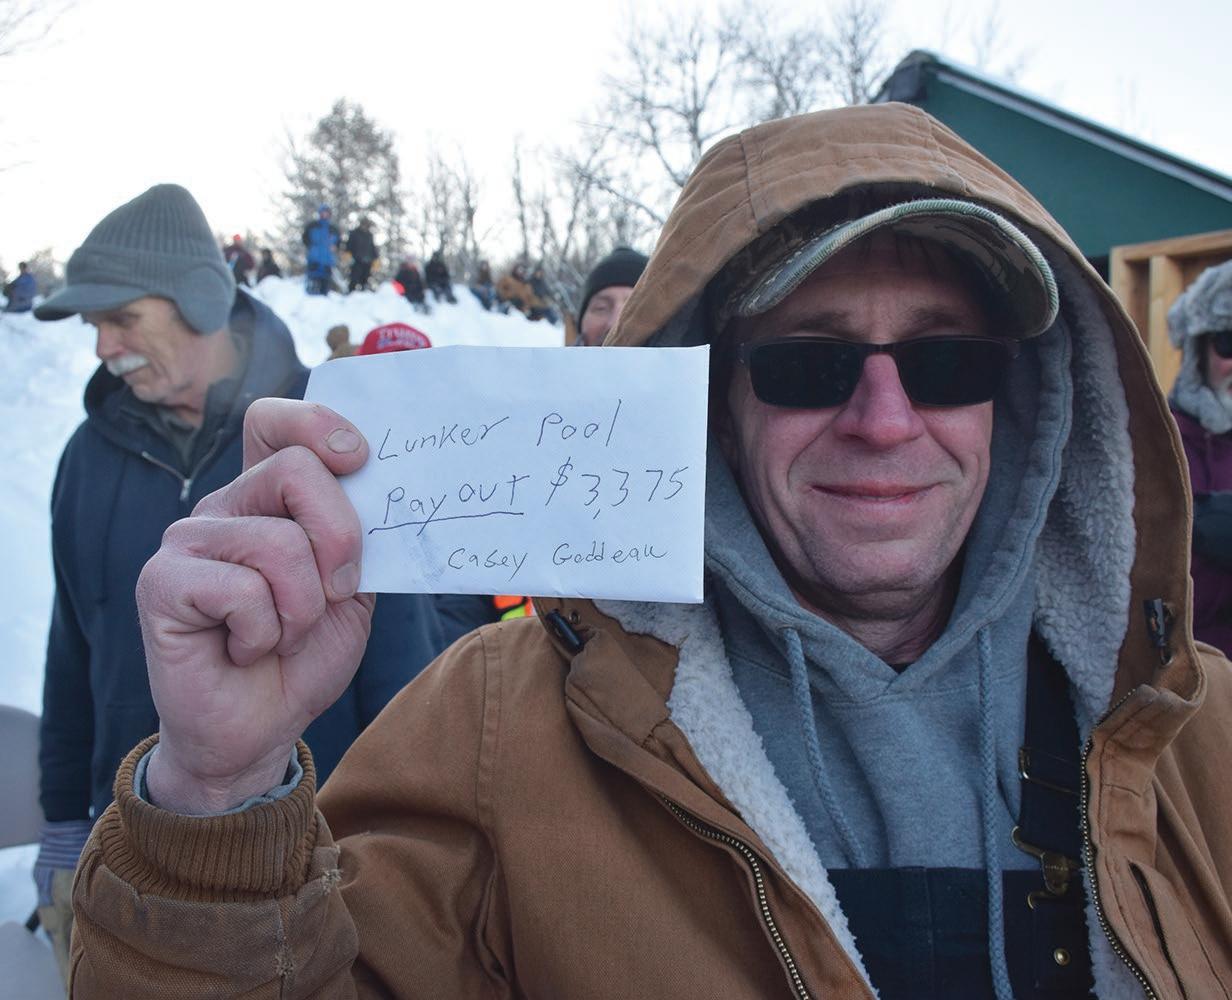 TRUMP
Lunker Pool
Payout $3,375
Casey Goddeau